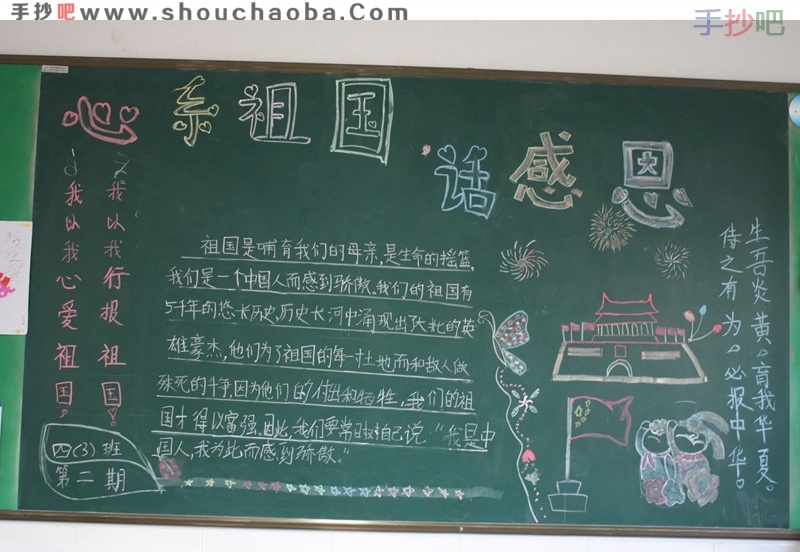 手抄吧 www.shouchaoba.com
手抄吧
心系祖国
话感恩
我以我心爱祖国。
我以我行报祖国!
祖国是哺育我们的母亲,是生命的摇篮,
我们是一个中国人而感到骄傲、我们的祖国有
5千年的悠长历史,历史长河中涌现出了的英
雄豪杰,他们为了祖国的每一寸土地而和敌人做
殊死的斗争,因为他们的付出和牺牲,我们的祖
国才得以富强,因此,我们要常对自己说:“我是中
国人,我为此而感到骄傲。”
四(3)班
第二期
生吾炎黄。育我华夏。
侍之有为。必报中华。